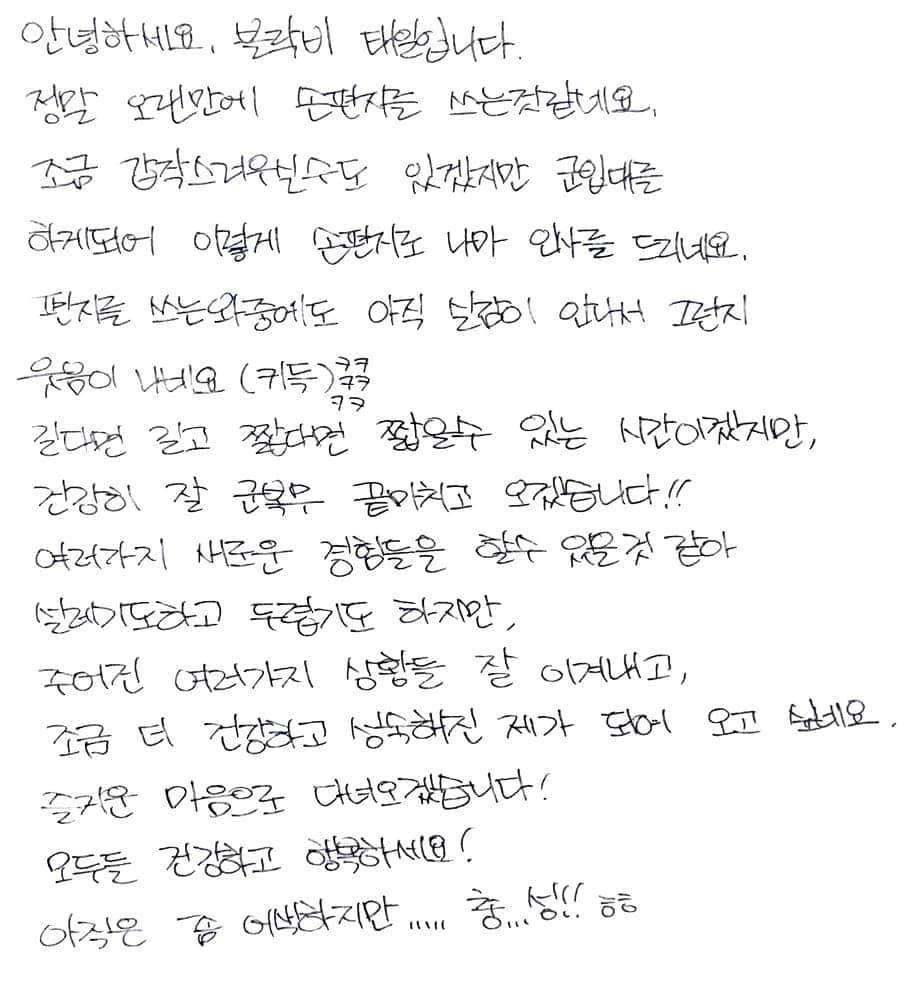 안녕하세요. 블락비 태일입니다.
정말 오랜만에 손편지를 쓰는것같네요.
조금 갑작스러우실수도 있겠지만 군입대를
하게되어 이렇게 손편지로 나마 인사를 드리네요.
편지를 쓰는와중에도 아직 실감이 안나서 그런지
웃음이 나네요 (키득)ㅋㅋㅋㅋㅋㅋ
길다면 길고 짧다면 짧을수 있는 시간이겠지만,
건강히 잘 군복무 끝마치고 오겠습니다!!
여러가지 새로운 경험들을 할수 있을것 같아
설레기도하고 두렵기도 하지만,
주어진 여러가지 상황들 잘 이겨내고,
조금 더 건강하고 성숙해진 제가 되어 오고 싶네요.
즐거운 마음으로 다녀오겠습니다!
모두들 건강하고 행복하세요!
아직은 좀 어색하지만..... 충...성!! ㅎㅎ